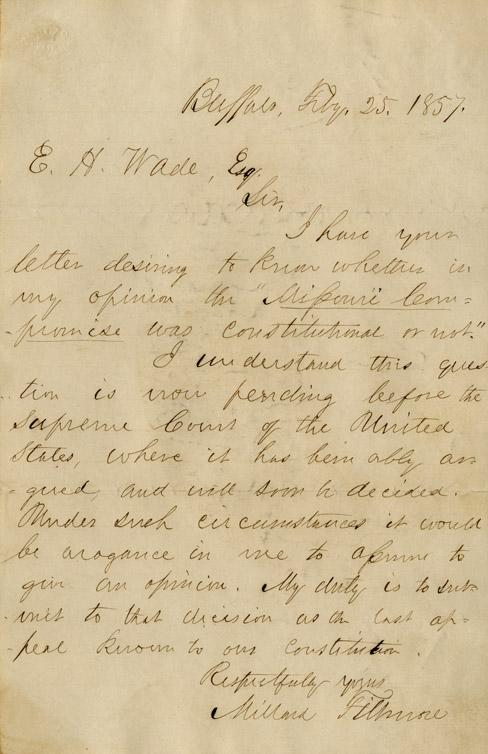 Buffalo, Feby. 25. 1857.
E. H. Wade, Esq.
Sir,
I have your
letter desiring to know whether in
my opinion the "Missouri Com=
-promise was constitutional or not."
I understand this ques-
-tion is now pending before the
Supreme Court of the United
States, where it has been ably ar-
-gued, and will soon be decided.
Under such circumstances it would
be arogance in me to assume to
give an opinion. My duty is to sub-
-mit to that decision as the last ap-
-peal known to our Constitution.
Respectfully yours
Millard Fillmore